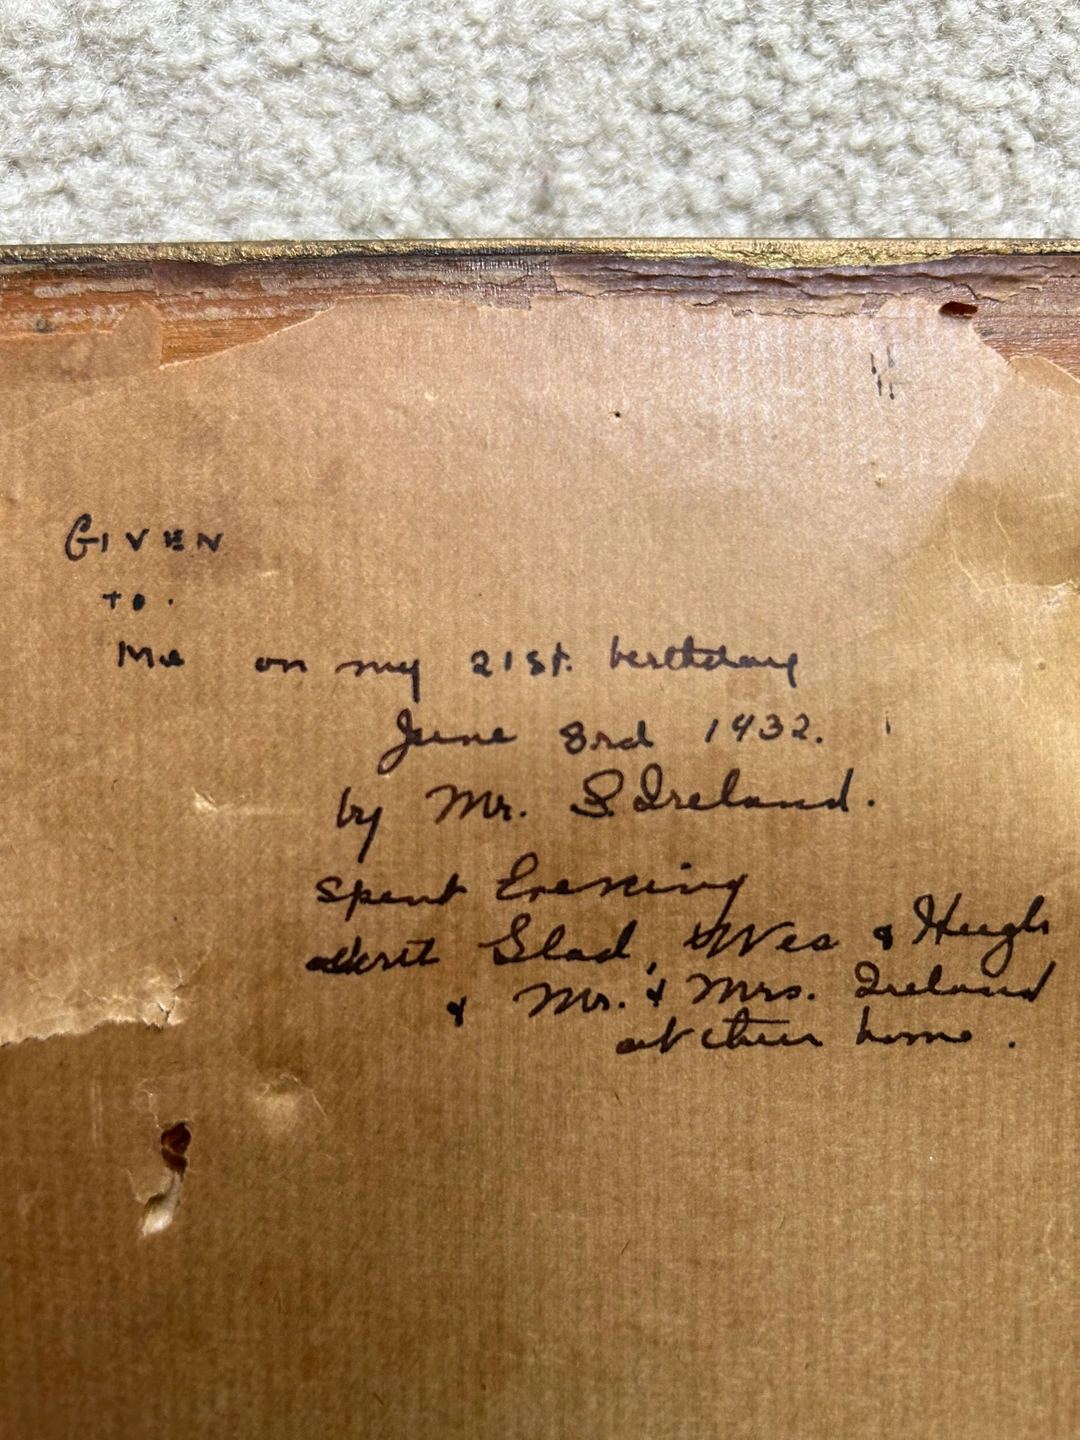 GIVEN
TO.
Me on my 21st. birthday
June 3rd 1932.
by Mr. S. Ireland.
Spent Evening
with Glad, Wes & Hugh
& Mr. & Mrs. Ireland
at their home.